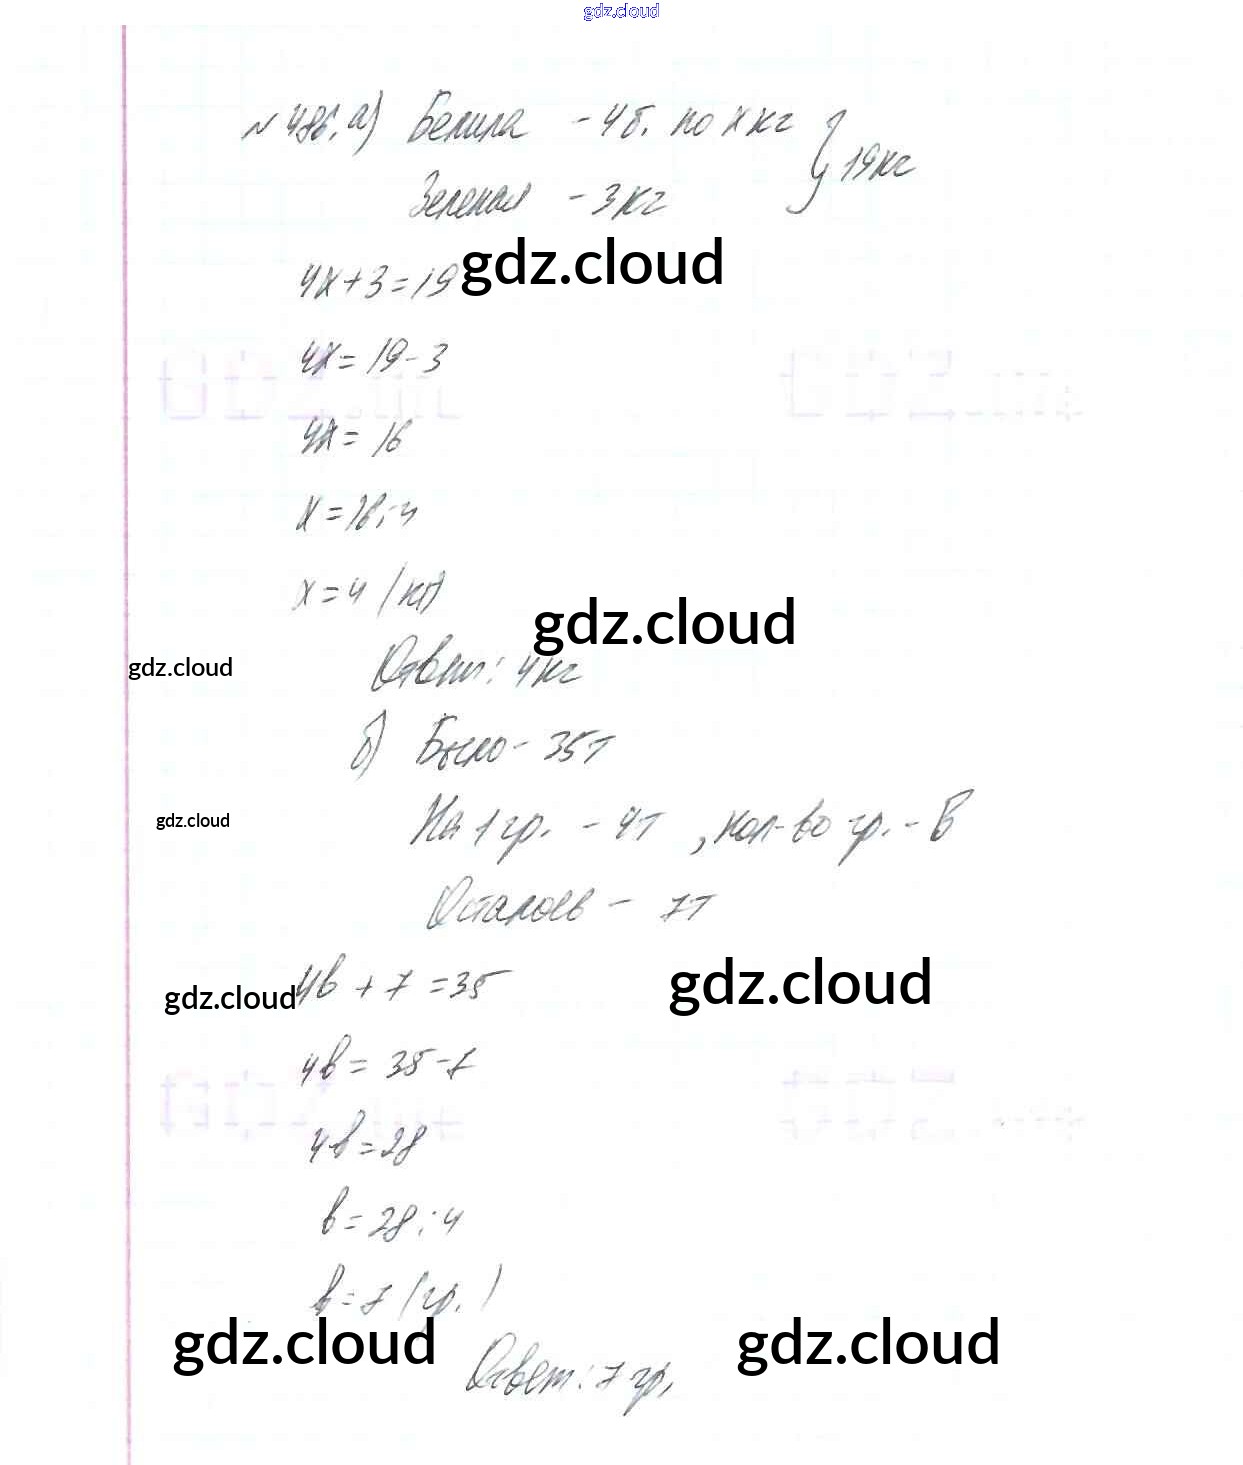 gdz.cloud
№486. а) Белила - 4б. по х кг } 19кг
Зеленая - 3кг
gdz.cloud
4х+3=19
4х= 19-3
4х= 16
х=16:4
х=4 (кг)
gdz.cloud
gdz.cloud
Ответ: 4кг
б) Было - 35т
gdz.cloud
На 1 гр. - 4т, кол-во гр. - в
Осталось - 7т
gdz.cloud
gdz.cloud
4в + 7 =35
4в= 35-7
4в=28
в=28:4
в=7 (гр.)
gdz.cloud
gdz.cloud
Ответ: 7 гр.